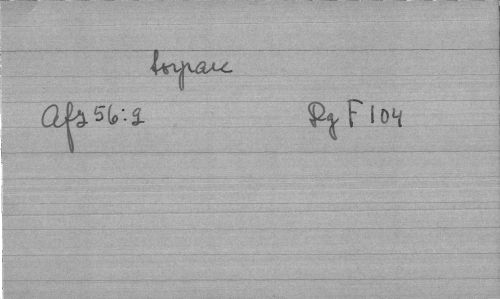 torpare
Afz 56:2 Rg F 104